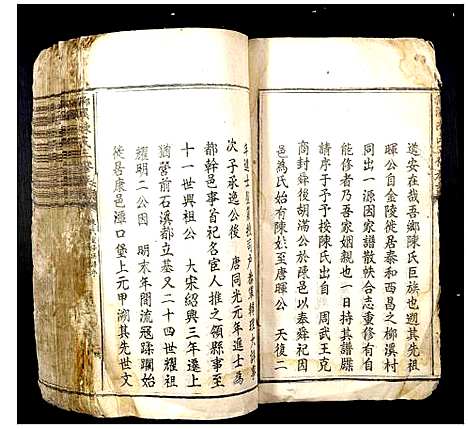 道安在哉吾鄉陳氏巨族也溯其先祖
暉公自金陵徙居泰和西昌之柳溪村
出同一源因家譜散帙合志重修有自
才能者乃吾家姻親也一日持其譜牒
請序于予予按陳氏出自 周武王克
商封舜後胡滿公於陳邑以奉舜祀因
邑為氏始有陳姓至唐暉公 天復二
年進士
次子承逸公後 唐同光元年進士為
都幹邑事首祀名宦人推之領縣事至
十世興祖公 大宋紹興三年遷上
猶營前石溪都立基又二十四世耀祖
耀明二公因 明末年閩流冠蹂躪始
徙居康邑潭口堡上元甲溯其先世文